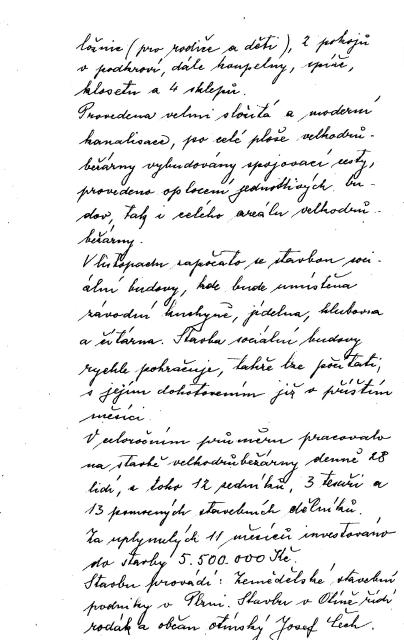 ložnic (pro rodiče a děti), 2 pokojů
v podkroví, dále koupelny, spíže,
klosetu a 4 sklepů.
Provedena velmi složitá a moderní
kanalisace, po celé ploše velkodrů-
bežárny vybudovány spojovací cesty,
provedeno oplocení jednotlivých bu-
dov, tak i celého areálu velkodrů-
bežárny.
V listopadu započato se stavbou soci-
ální budovy, kde bude umístěna
závodní kuchyně, jídelna, klubovna
a čítárna. Stavba sociální budovy
rychle pokračuje, takže lze počítati,
s jejím dohotovením již v příštím
měsíci.
V celoročním průměru pracovalo
na stavbě velkodrůbežárny denně 28
lidí, z toho 12 zedníků, 3 tesaři a
13 pomocných stavebních dělníků.
Za uplynulých 11 měsíců investováno
do stavby 5.500.000 Kč.
Stavbu provádí: Zemědělské stavební
podniky v Plzni. Stavbu v Otíně řídí
rodák a občan otínský Josef Cech.